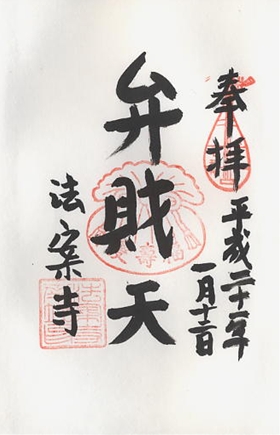 奉拝
平成二十二年
一月十二日
弁財天
法案寺